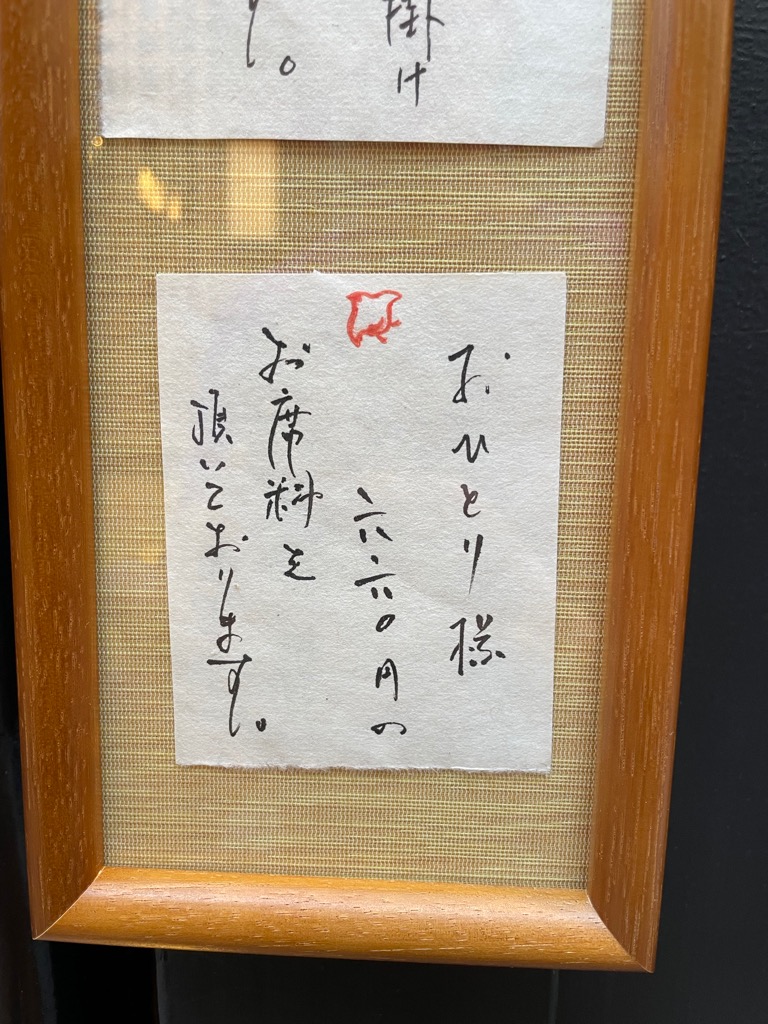 掛け
す。
おひとり様
六六〇円の
お席料を
頂いております。